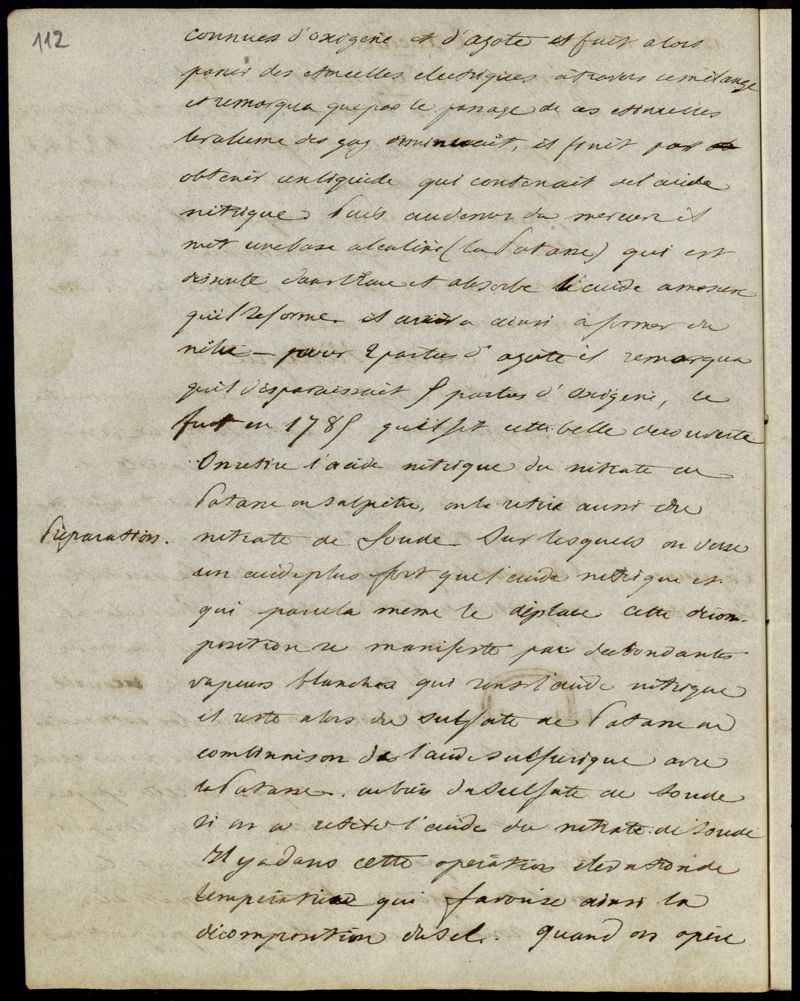 112
connues d'oxigene et d'azote et fait alors
passer des étincelles electriques à travers ce mélange
et remarqua que par le passage de ces étincelles
le volume des gaz diminuait, et finit par
obtenir un liquide qui contenait de l'acide
nitrique. Puis au dessus du mercure il
met une base alcaline (la Potasse) qui est
dissoute dans l'eau et absorbe l'acide a mesure
qu'il se forme. il arriva ainsi à former du
nitre — pour 2 parties d'azote il remarqua
qu'il disparaissait 5 parties d'oxigene, ce
fut en 1785 qu'il fit cette belle decouverte
On retire l'acide nitrique du nitrate de
Potasse ou salpêtre, on le retire aussi du
Préparation.
nitrate de Soude. Sur lesquels on verse
un acide plus fort que l'acide nitrique et
qui par cela meme le déplace cette décom-
position se manifeste par d'abondantes
vapeurs blanches qui sont l'acide nitrique
il reste alors du sulfate de Potasse
combinaison de l'acide sulfurique avec
la Potasse. ou bien du sulfate de Soude
si on a retiré l'acide du nitrate de Soude
Il y a dans cette operation elevation de
temperature qui favorise ainsi la
décomposition du sel. Quand on opère